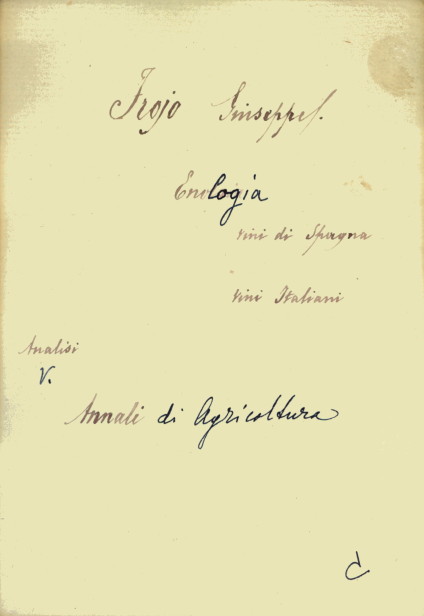 Frojo Giuseppe.
Enologia
vini di Spagna
vini Italiani
Analisi
V.
Annali di Agricoltura
C